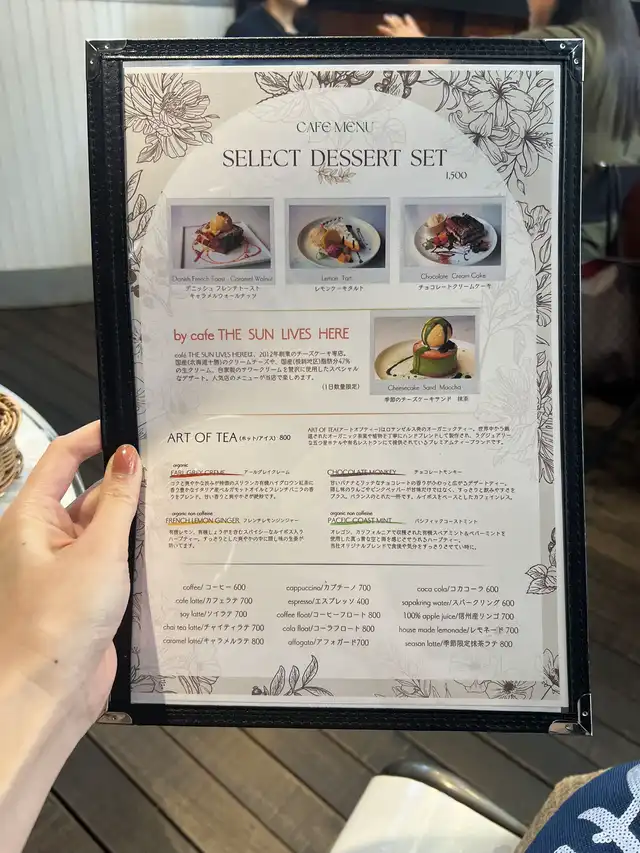 CAFE MENU
SELECT DESSERT SET
1,500
Danish French Toast - Caramel Walnut
デニッシュ フレンチトースト
キャラメルウォールナッツ
Lemon Tart
レモンケーキタルト
Chocolate Cream Cake
チョコレートクリームケーキ
by cafe THE SUN LIVES HERE
café THE SUN LIVES HEREは、2012年創業のチーズケーキ専店。
国産(北海道十勝)のクリームチーズや、国産(根釧地区)脂肪分47%
の生クリーム、自家製のサワークリームを贅沢に使用したスペシャル
なデザート。人気店のメニューが当店で楽しめます。
(1日数量限定)
Cheesecake Sand Maccha
季節のチーズケーキサンド 抹茶
ART OF TEA (ホット/アイス) 800
ART OF TEA(アートオブティー)はロサンゼルス発のオーガニックティー。世界中から厳
選されたオーガニック茶葉や植物を丁寧にハンドブレンドして製造され、ラグジュアリー
な五つ星ホテルや有名レストランにて提供されているプレミアムティーブランドです。
organic
EARL GREY CREME アールグレイクレーム
コクと爽やかな渋みが特徴のスリランカ有機ハイグロウン紅茶に
香り豊かなイタリア産ベルガモットオイルとフレンチバニラの香
りをブレンド。甘い香りと爽やかさが絶妙です。
CHOCOLATE MONKEY チョコレートモンキー
甘いバナナとリッチなチョコレートの香りがふわっと広がるデザートティー。
隠し味のりんごやピンクペッパーが甘味だけではなく、すっきりと飲みやすさを
プラス。バランスのとれた一杯です。ルイボスをベースとしたカフェインレス。
organic non caffeine
FRENCH LEMON GINGER フレンチレモンジンジャー
有機レモン、有機しょうがを含むスパイシーなルイボス入り
ハーブティー。すっきりとした爽やかの中に隠し味の生姜が
効いてます。
organic non caffeine
PACIFIC COAST MINT パシフィックコーストミント
オレゴン、カリフォルニアで収穫された有機スペアミント&ペパーミントを
使用した真っ青な空と海を感じさせられるハーブティー。
当社オリジナルブレンドで食後や気分をすっきりさせたい時に。
coffee/ コーヒー 600
cafe latte/カフェラテ 700
soy latte/ソイラテ 700
chai tea latte/チャイティラテ 700
caramel latte/キャラメルラテ 800
cappuccino/カプチーノ 700
espresso/エスプレッソ 400
coffee float/コーヒーフロート 800
cola float/コーラフロート 800
affogato/アフォガード700
coca cola/コカコーラ 600
sapakring water/スパークリング 600
100% apple juice/信州産リンゴ 700
house made lemonade/レモネード 700
season latte/季節限定抹茶ラテ 800